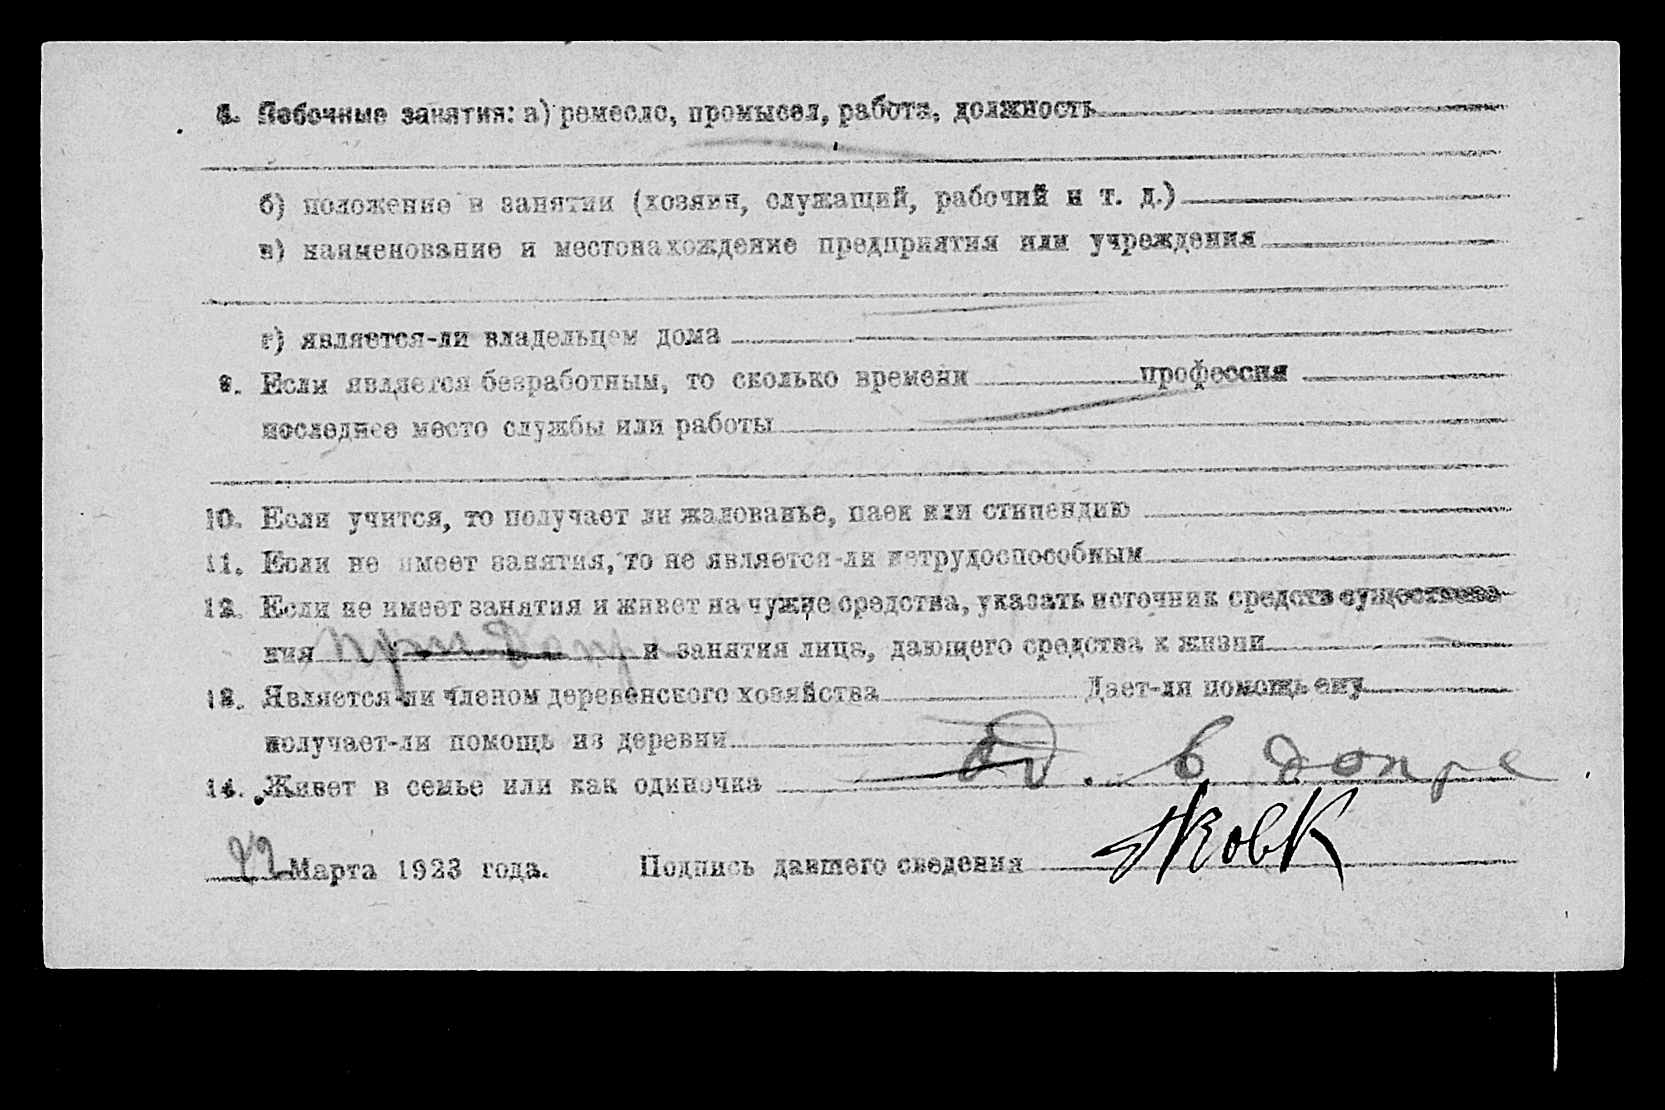 8. Побочные занятия: а) ремесло, промысел, работа, должность
б) положение в занятии (хозяин, служащий, рабочий и т. д.)
в) наименование и местонахождение предприятия или учреждения
г) является-ли владельцем дома
9. Если является безработным, то сколько времени профессия
последнее место службы или работы
10. Если учится, то получает ли жалованье, паек или стипендию
11. Если не имеет занятия, то не является-ли нетрудоспособным
12. Если не имеет занятия и живет на чужие средства, указать источник средств существова-
ния и занятия лица, дающего средства к жизни
13. Является-ли членом деревенского хозяйства Дает-ли помощь ему
получает-ли помощь из деревни
14. Живет в семье или как одиночка од. в допре
22 Марта 1923 года. Подпись давшего сведения